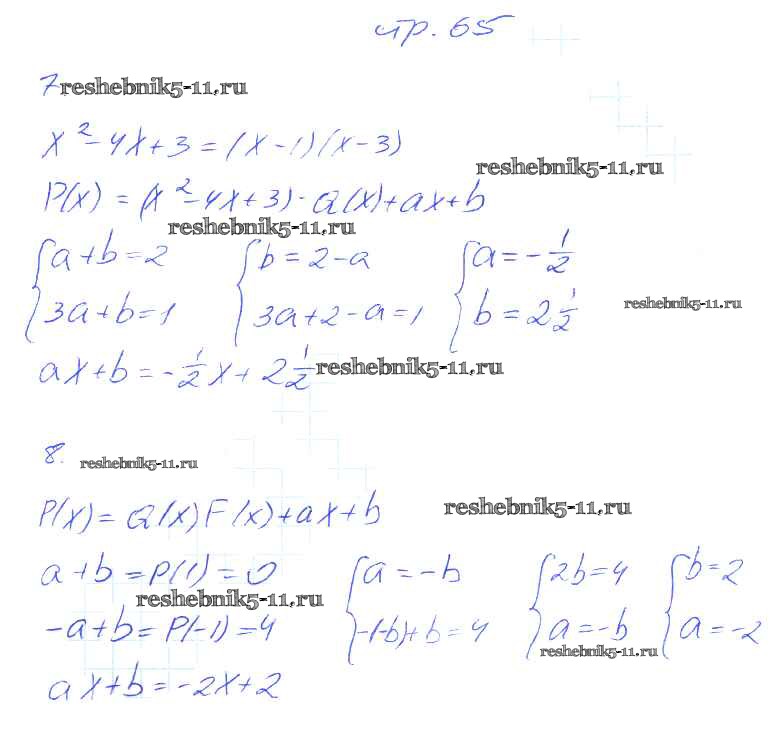 стр. 65
7 reshebnik5-11.ru
x²-4x+3=(x-1)(x-3)
reshebnik5-11.ru
P(x)=(x²-4x+3)·Q(x)+ax+b
reshebnik5-11.ru
{a+b=2 {b=2-a {a=-1/2
{3a+b=1 {3a+2-a=1 {b=2 1/2 reshebnik5-11.ru
ax+b=-1/2x+2 1/2 reshebnik5-11.ru
8. reshebnik5-11.ru
P(x)=Q(x)F(x)+ax+b reshebnik5-11.ru
a+b=P(1)=0 {a=-b {2b=4 {b=2
reshebnik5-11.ru
-a+b=P(-1)=4 {-(-b)+b=4 {a=-b {a=-2
reshebnik5-11.ru
ax+b=-2x+2